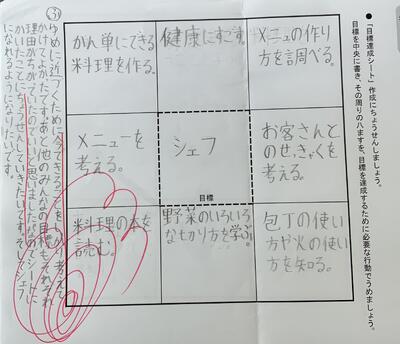 ●「目標達成シート」作成にちょうせんしましょう。
目標を中央に書き、その周りの八ますを、目標を達成するために必要な行動でうめましょう。
メニュの作り
方を調べる。
健康にすごす。
がん単にできる
料理を作る。
お客さんと
のせっきゃくを
考える。
シェフ
目標
メニューを
考える。
包丁の使い
方や火の使い
方を知る。
野菜のいろいろ
なせかり方を学ぶ。
料理の本を
読む。
③
ゆめに近づくために今できることをしっかり考えて
かけてよかったですあと他のみんなの目標もそれぞれ
理由がちがっていたのでいいと思いましたなのでシートに
かいたことにちょうせんしていきたいです。そしてシェフ
になれるようになりたいです。